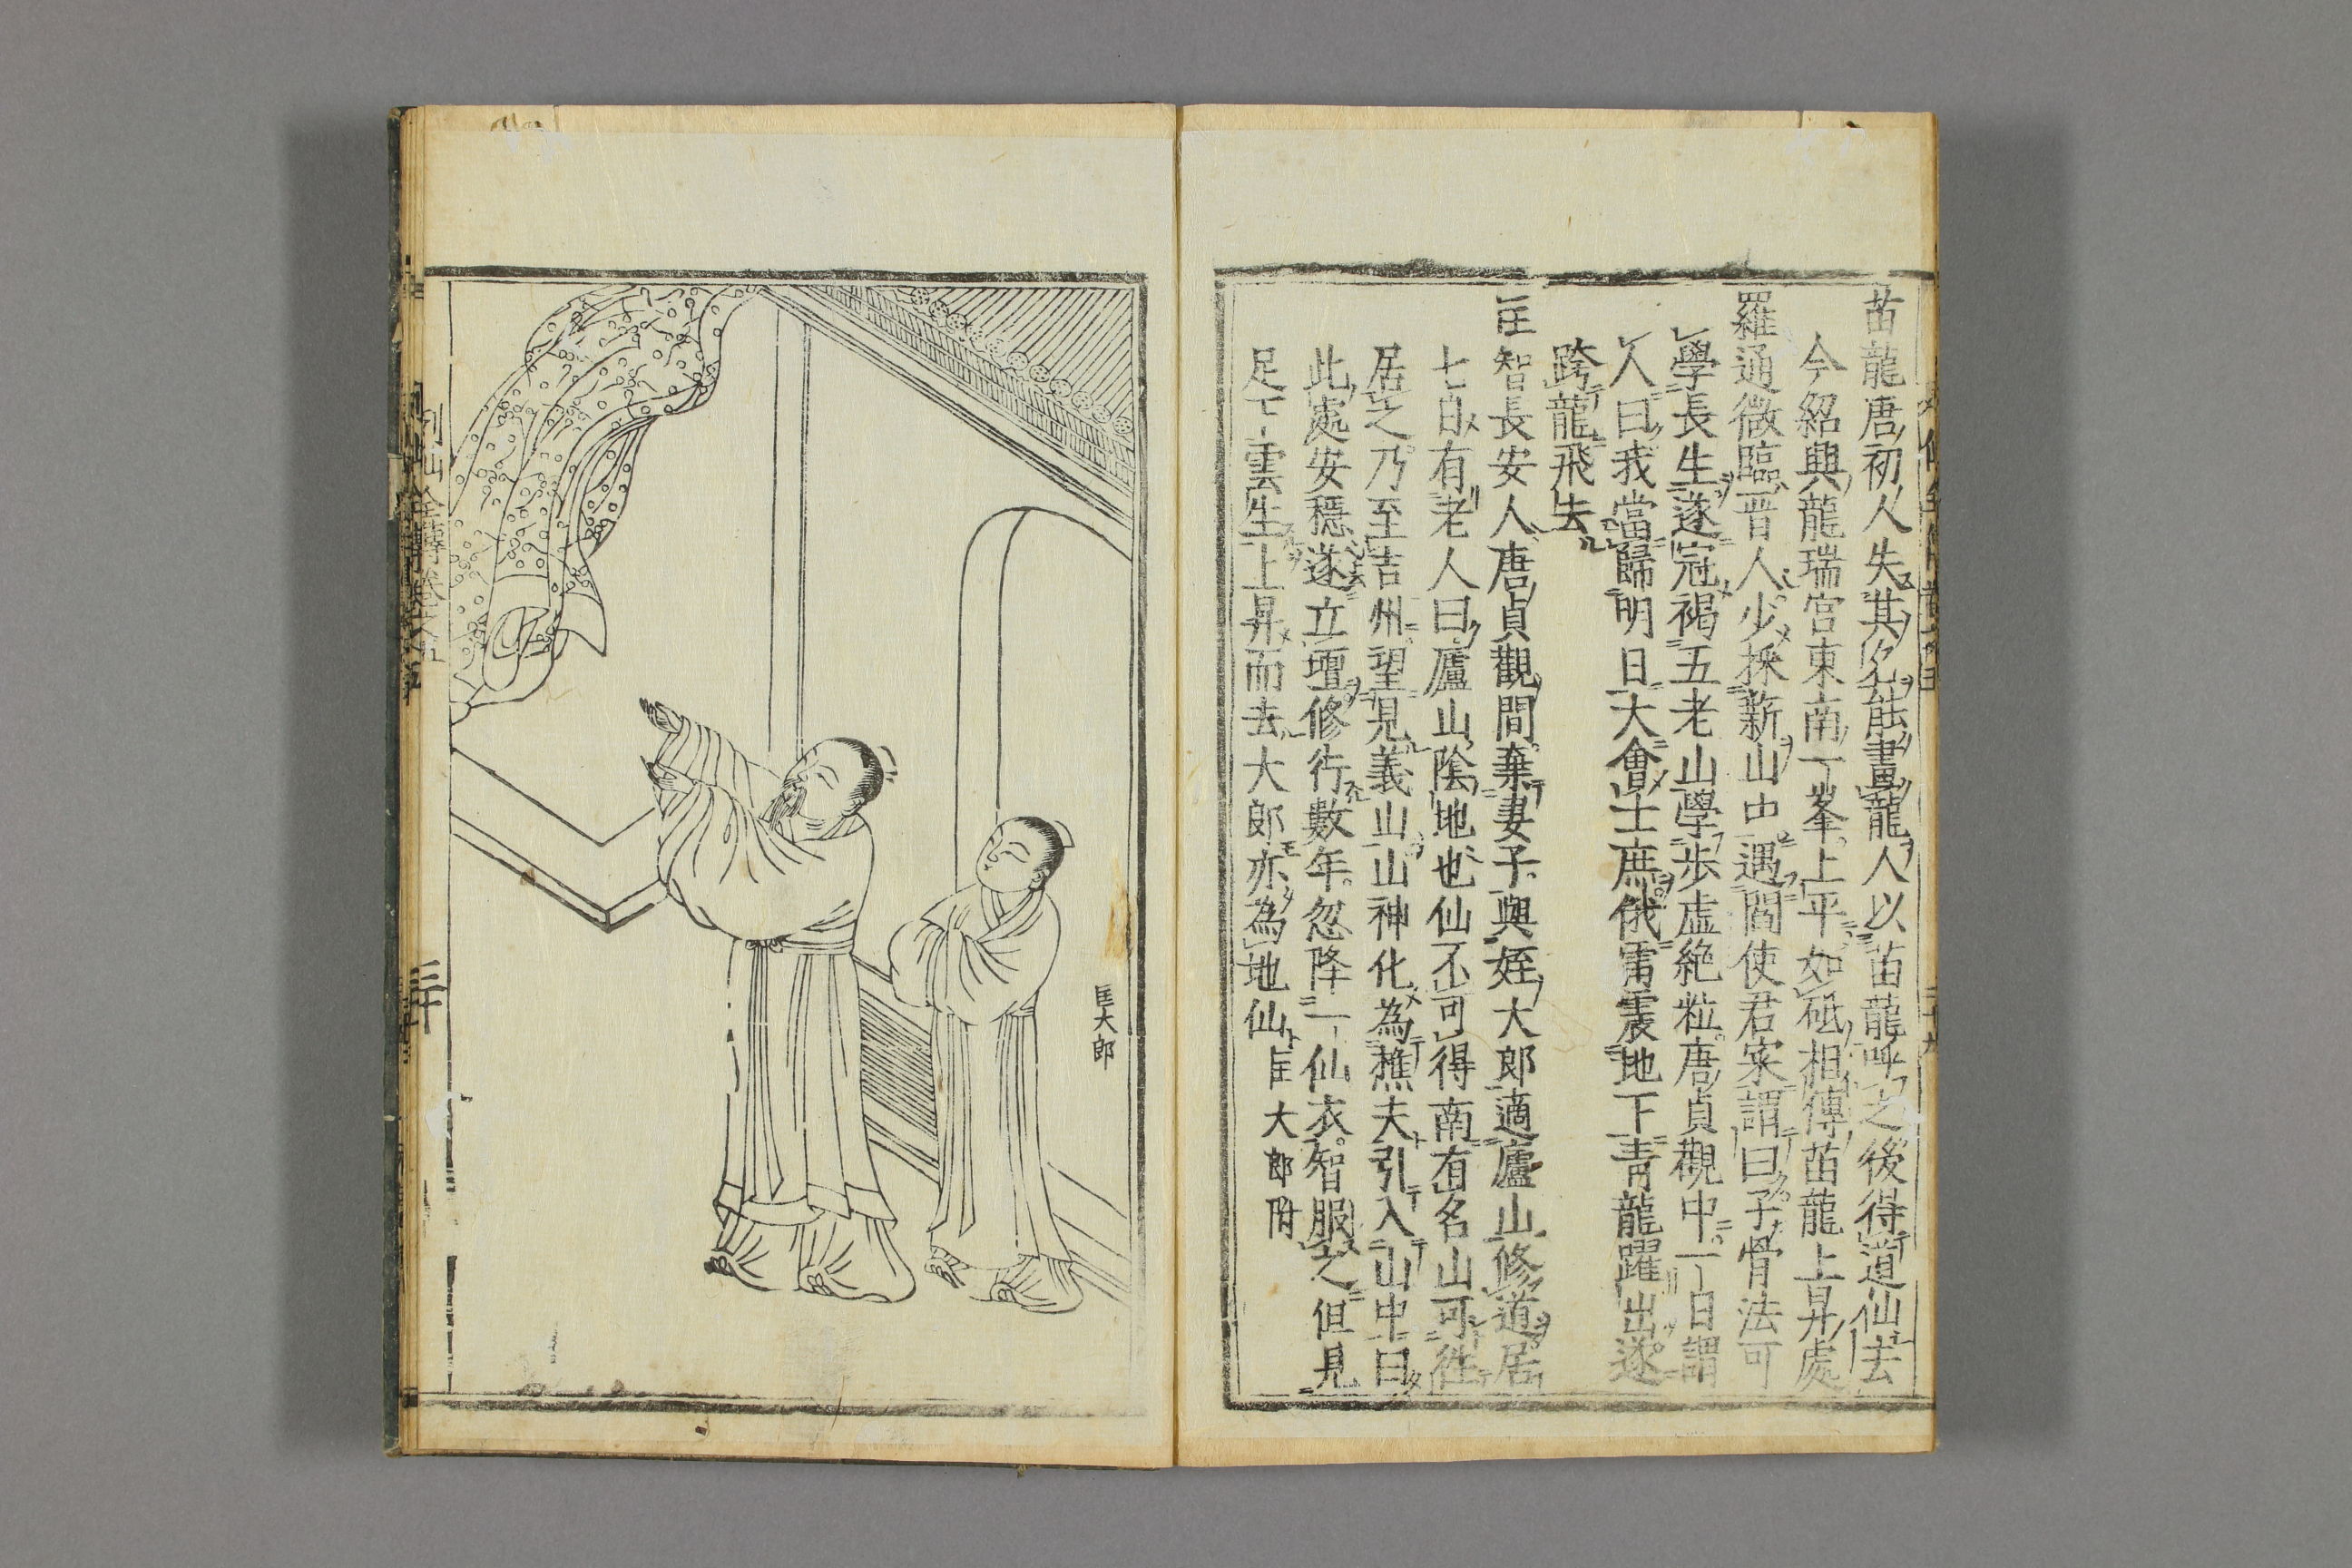 苗龍唐初人失其名能畫龍人以苗龍呼之後得道仙去
今紹興龍瑞宮東南一峯上平如砥相傳苗龍上昇處
羅通微臨晋人少採薪山中遇閻使君寀謂曰子骨法可
學長生遂冠褐五老山學步虛絕粒唐貞觀中一日謂
人曰我當歸明日大會士庶俄雷震地下青龍躍出遂
跨龍飛去
匡智長安人唐貞觀間棄妻子與姪大郎適廬山修道居
七日有老人曰廬山陰地也仙不可得南有名山可往
居之乃至吉州望見義山山神化為樵夫引入山中曰
此處安穩遂立壇修行數年忽降一仙衣智服之但見
足下雲生上昇而去大郎亦為地仙 匡大郎附
匡大郎
列仙全傳卷之五
三十